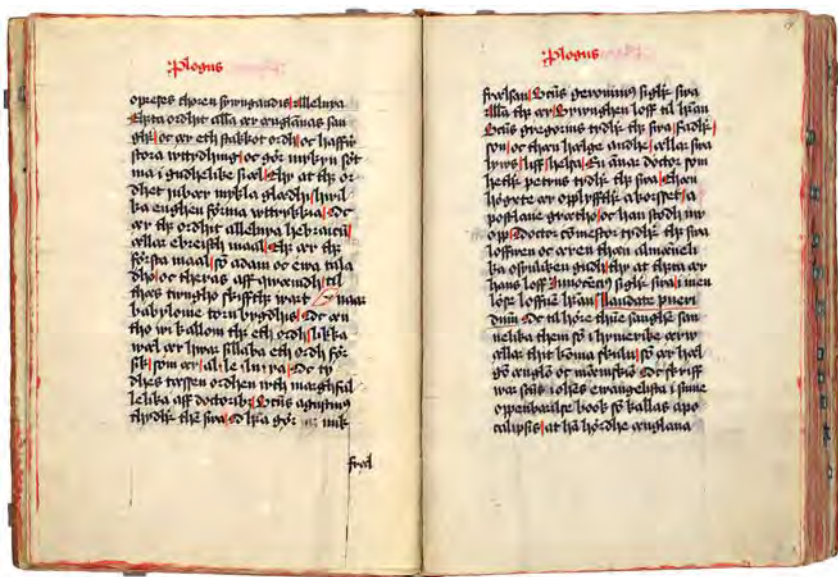 Plogus
opreses thoren siwngandis alleluya
Thetta ordhit alla ær ænglanas san
gh oc ær eth stakkot ordh oc haffw
stora wttydhing oc gör mykyn söt
ma i gudhelike siæl Thy at th or
dhet mykla glædhi hwil
ka enghen förma wttrykkia Oc
ær th ordhit alleluya hebraicu
ællar ebreisth maal Th ær th
första maal so adam oc ewa tala
dho oc theras aff til
thæs twngho skiffth wart naar
babylonie torn bygdhis Oc æn
tho wi kallom th eth ordh likka
wæl ær hwar sillaba eth ordh för
sik som ær al le lu ya Oc ty
dhes tæssen ordhen wth
lelika aff doctoribus Sctus agustinus
thydh the swa O gör mik
fræl
Plogus
frælsan Sctus geronimus sigh swa
Alla ær loff til
Sctus gregorius tydh th swa Fadh
son oc then hælge andhe ællar swa
lyws liff helsa En annar doctor som
heth petrus tydh th swa Thæn
högxte ær opplyffth a korsset a
postlane grætho oc han stodh
opp Doctor tydh th swa
loffwen oc æren thæn almæneli
ka gudh thy at thetta ær
hans loff Innocecius sigh swa i men
löse loffue Laudate pueri
dnm Oc til höre thine sanghe san
nelika them so i hymerike ærw
ællar thit koma skulu so ær hæl
go ænglo oc mænnisko Oc skriff
war sctus iohes ewangelista i sinne
oppenbarilse book so kallas apo
calipsis at ha hördhe ænglana